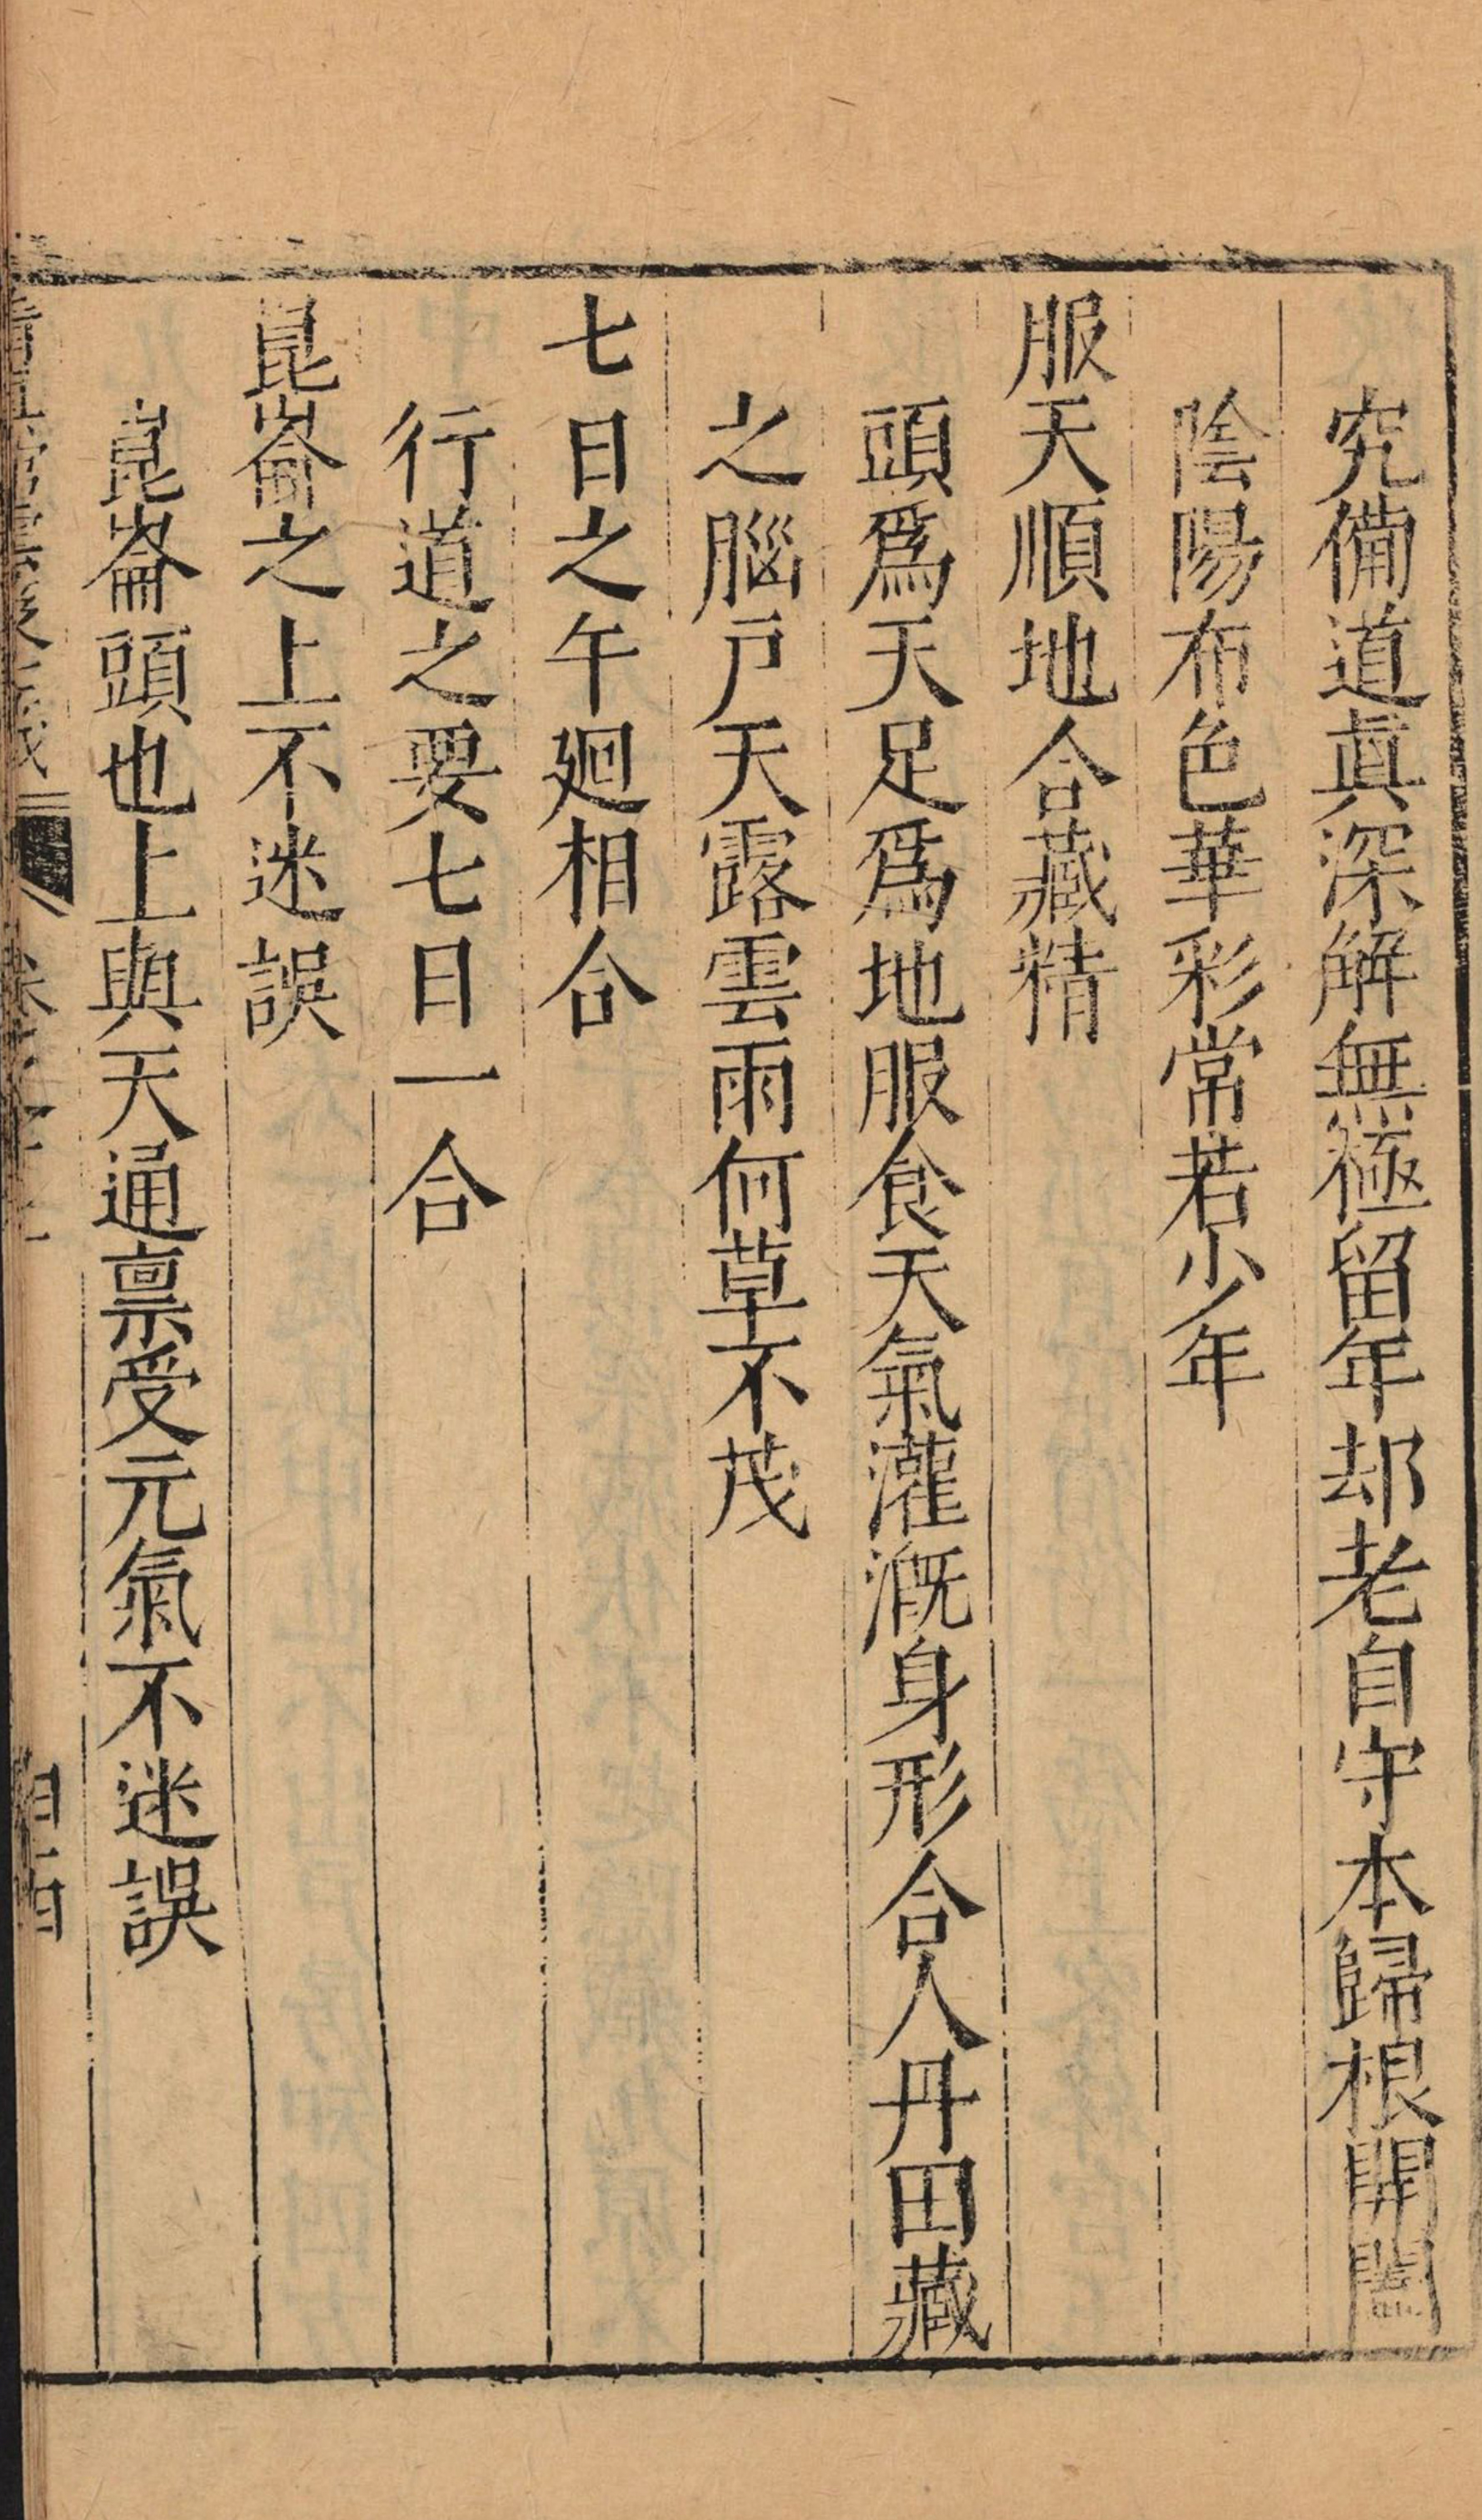 究備道眞深解無極留年却老自守本歸根開闔
陰陽布色華彩常若少年
服天順地合藏精
頭爲天足爲地服食天氣灌漑身形合人丹田藏
之腦戸天露雲雨何草不茂
七日之午廻相合
行道之要七日一合
崑崙之上不迷誤
崑崙頭也上與天通禀受元氣不迷誤